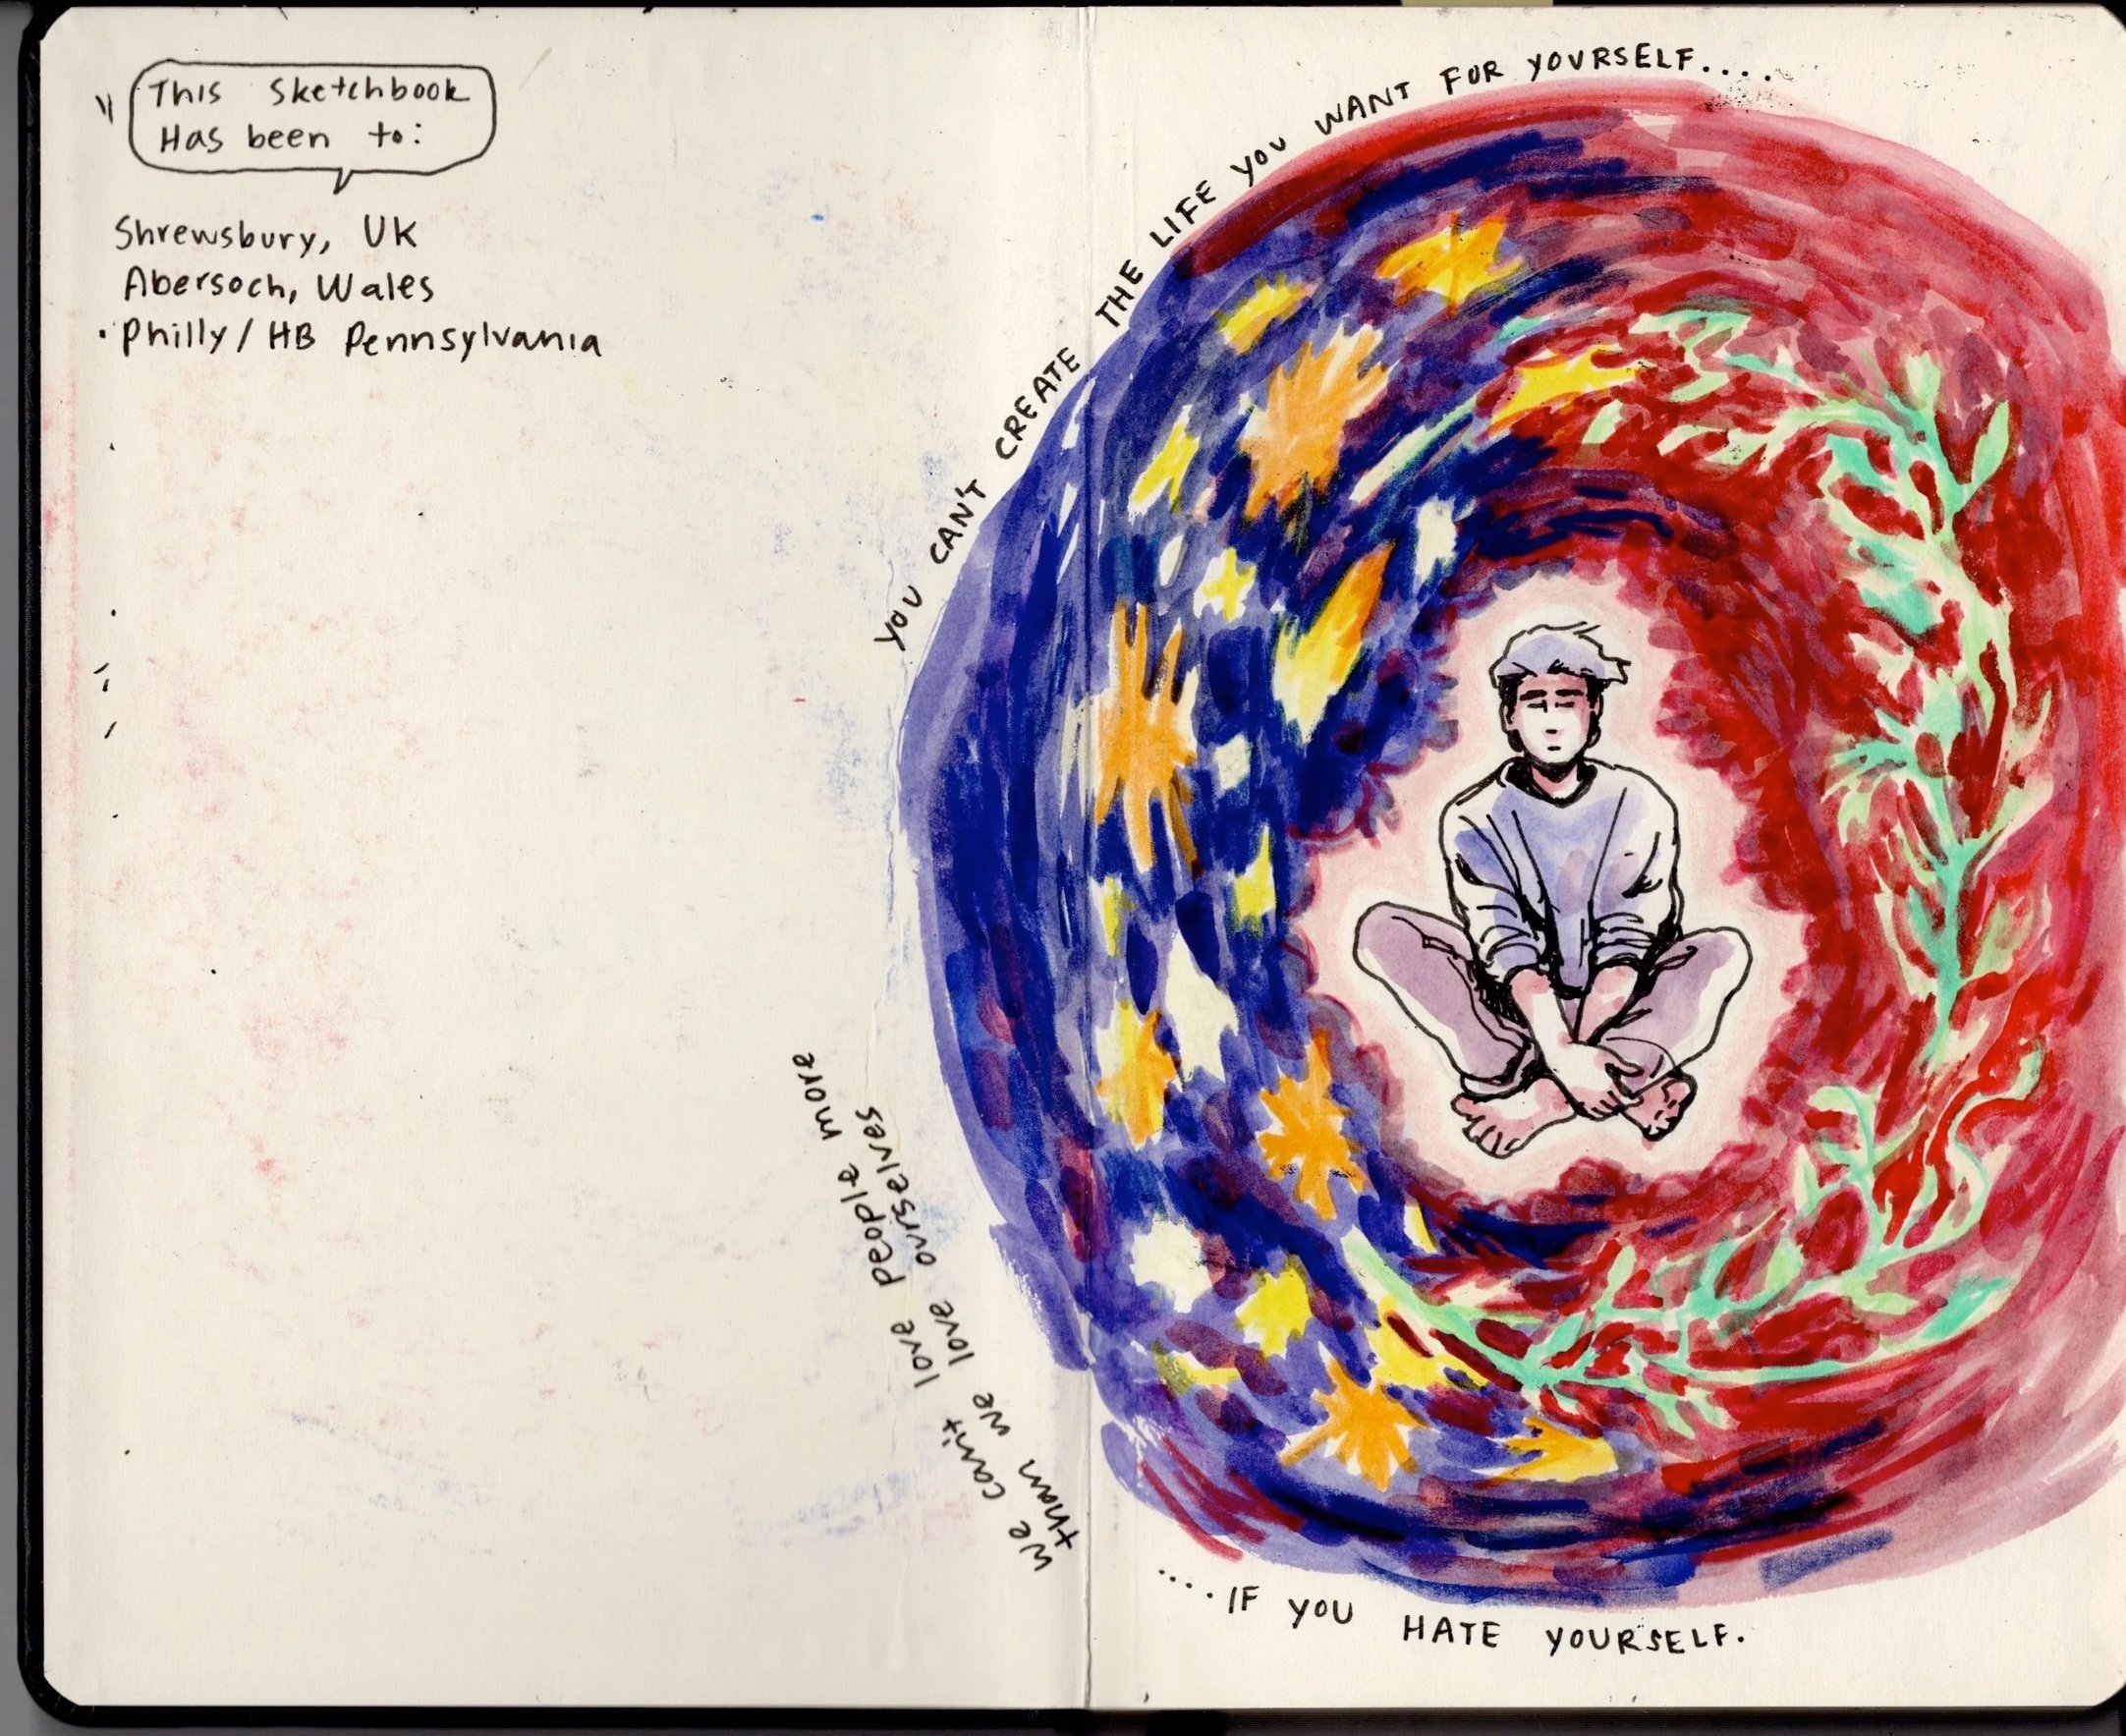 This Sketchbook
Has been to:
Shrewsbury, UK
Abersoch, Wales
Philly / HB Pennsylvania
YOU CAN'T CREATE THE LIFE YOU WANT FOR YOURSELF....
We can't love people more
than we love ourselves
....IF YOU HATE YOURSELF.